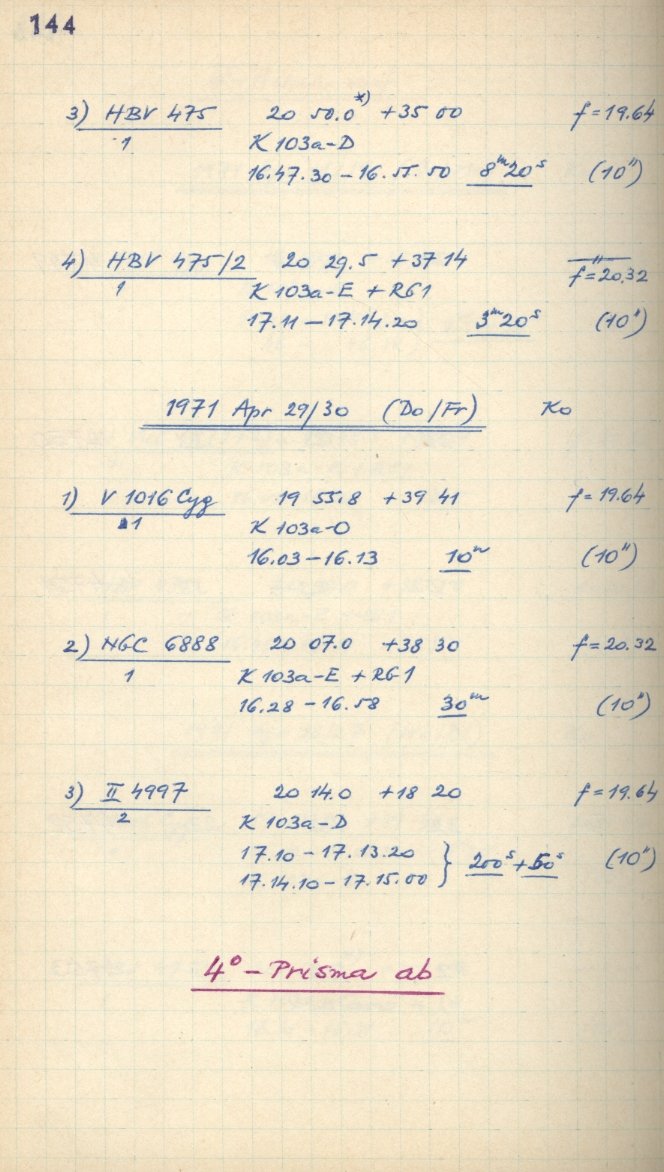 144
3) HBV 475 20 50.0*) +35 00 f=19.64
1 K 103a-D
16.47.30 – 16.55.50 8ᵐ20ˢ (10")
4) HBV 475/2 20 29.5 +37 14 f=20.32
1 K 103a-E + RG1
17.11 – 17.14.20 3ᵐ20ˢ (10")
1971 Apr 29/30 (Do/Fr) Ko
1) V 1016 Cyg 19 55.8 +39 41 f=19.64
1 K 103a-O
16.03 – 16.13 10ᵐ (10")
2) NGC 6888 20 07.0 +38 30 f=20.32
1 K 103a-E + RG1
16.28 – 16.58 30ᵐ (10")
3) II 4997 20 14.0 +18 20 f=19.64
2 K 103a-D
17.10 – 17.13.20 } 200ˢ + 50ˢ (10")
17.14.10 – 17.15.00
4° – Prisma ab